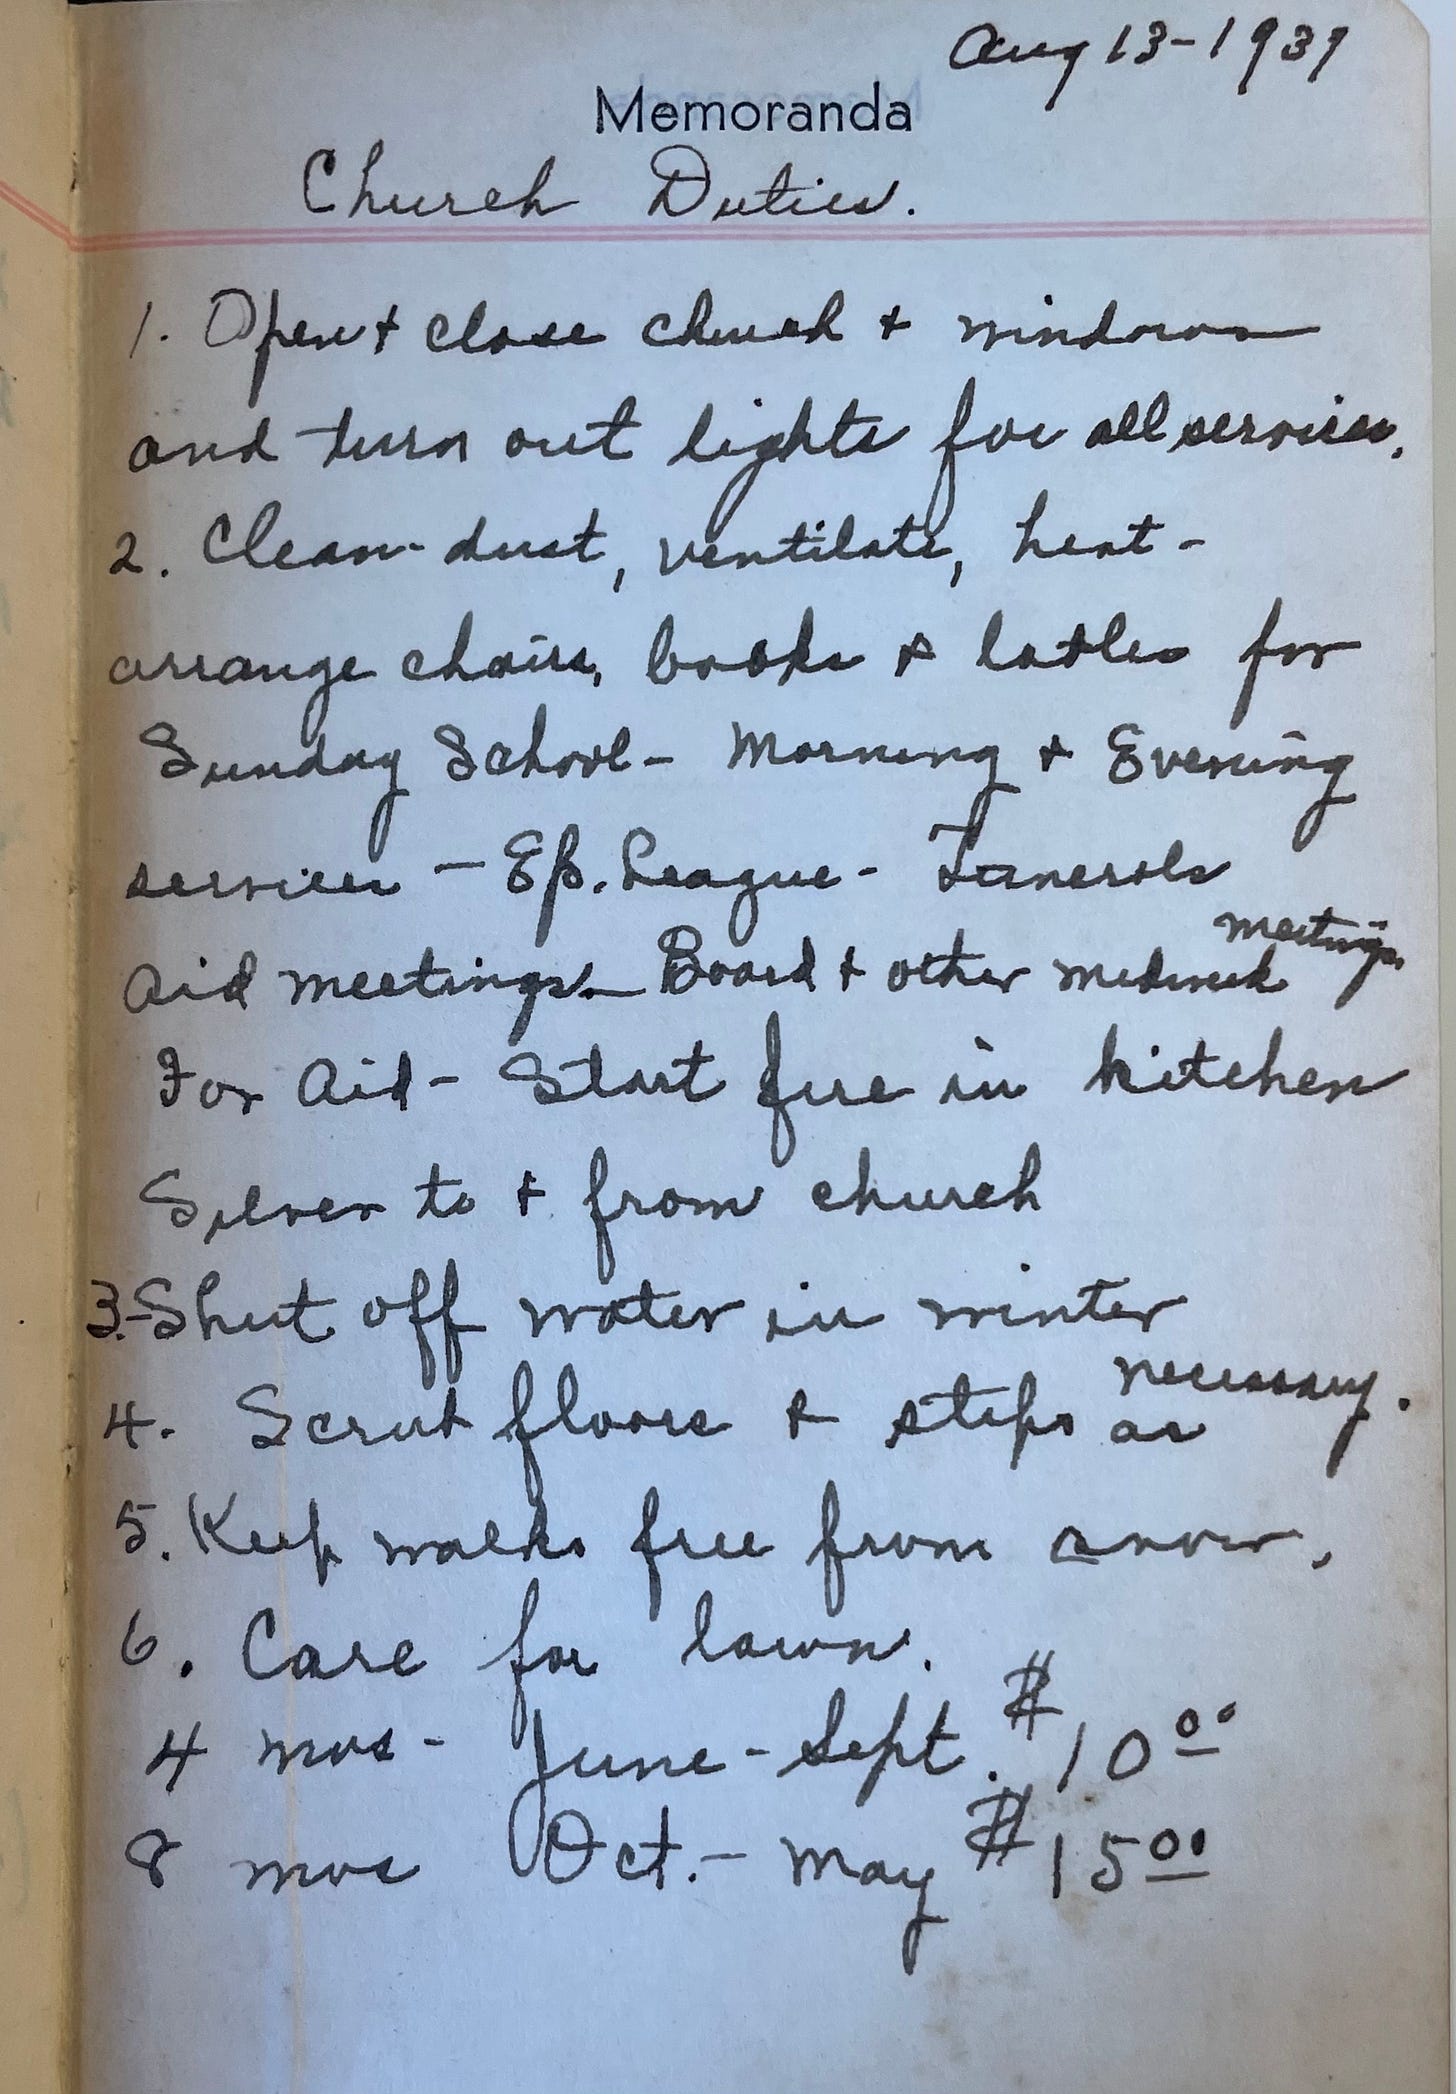 Aug 13-1939
Memoranda
Church Duties.
1. Open & close church & windows
and turn out lights for all services.
2. Clean - dust, ventilate, heat -
arrange chairs, books & tables for
Sunday School - Morning & Evening
services - Ep. League - Funerals
Aid meetings - Board & other midweek meetings.
For Aid - Start fire in kitchen
Silver to & from church
3.-Shut off water in winter
4. Scrub floors & steps as necessary.
5. Keep walks free from snow.
6. Care for lawn.
4 mos - June - Sept. $10.00
8 mos Oct. - May $15.00